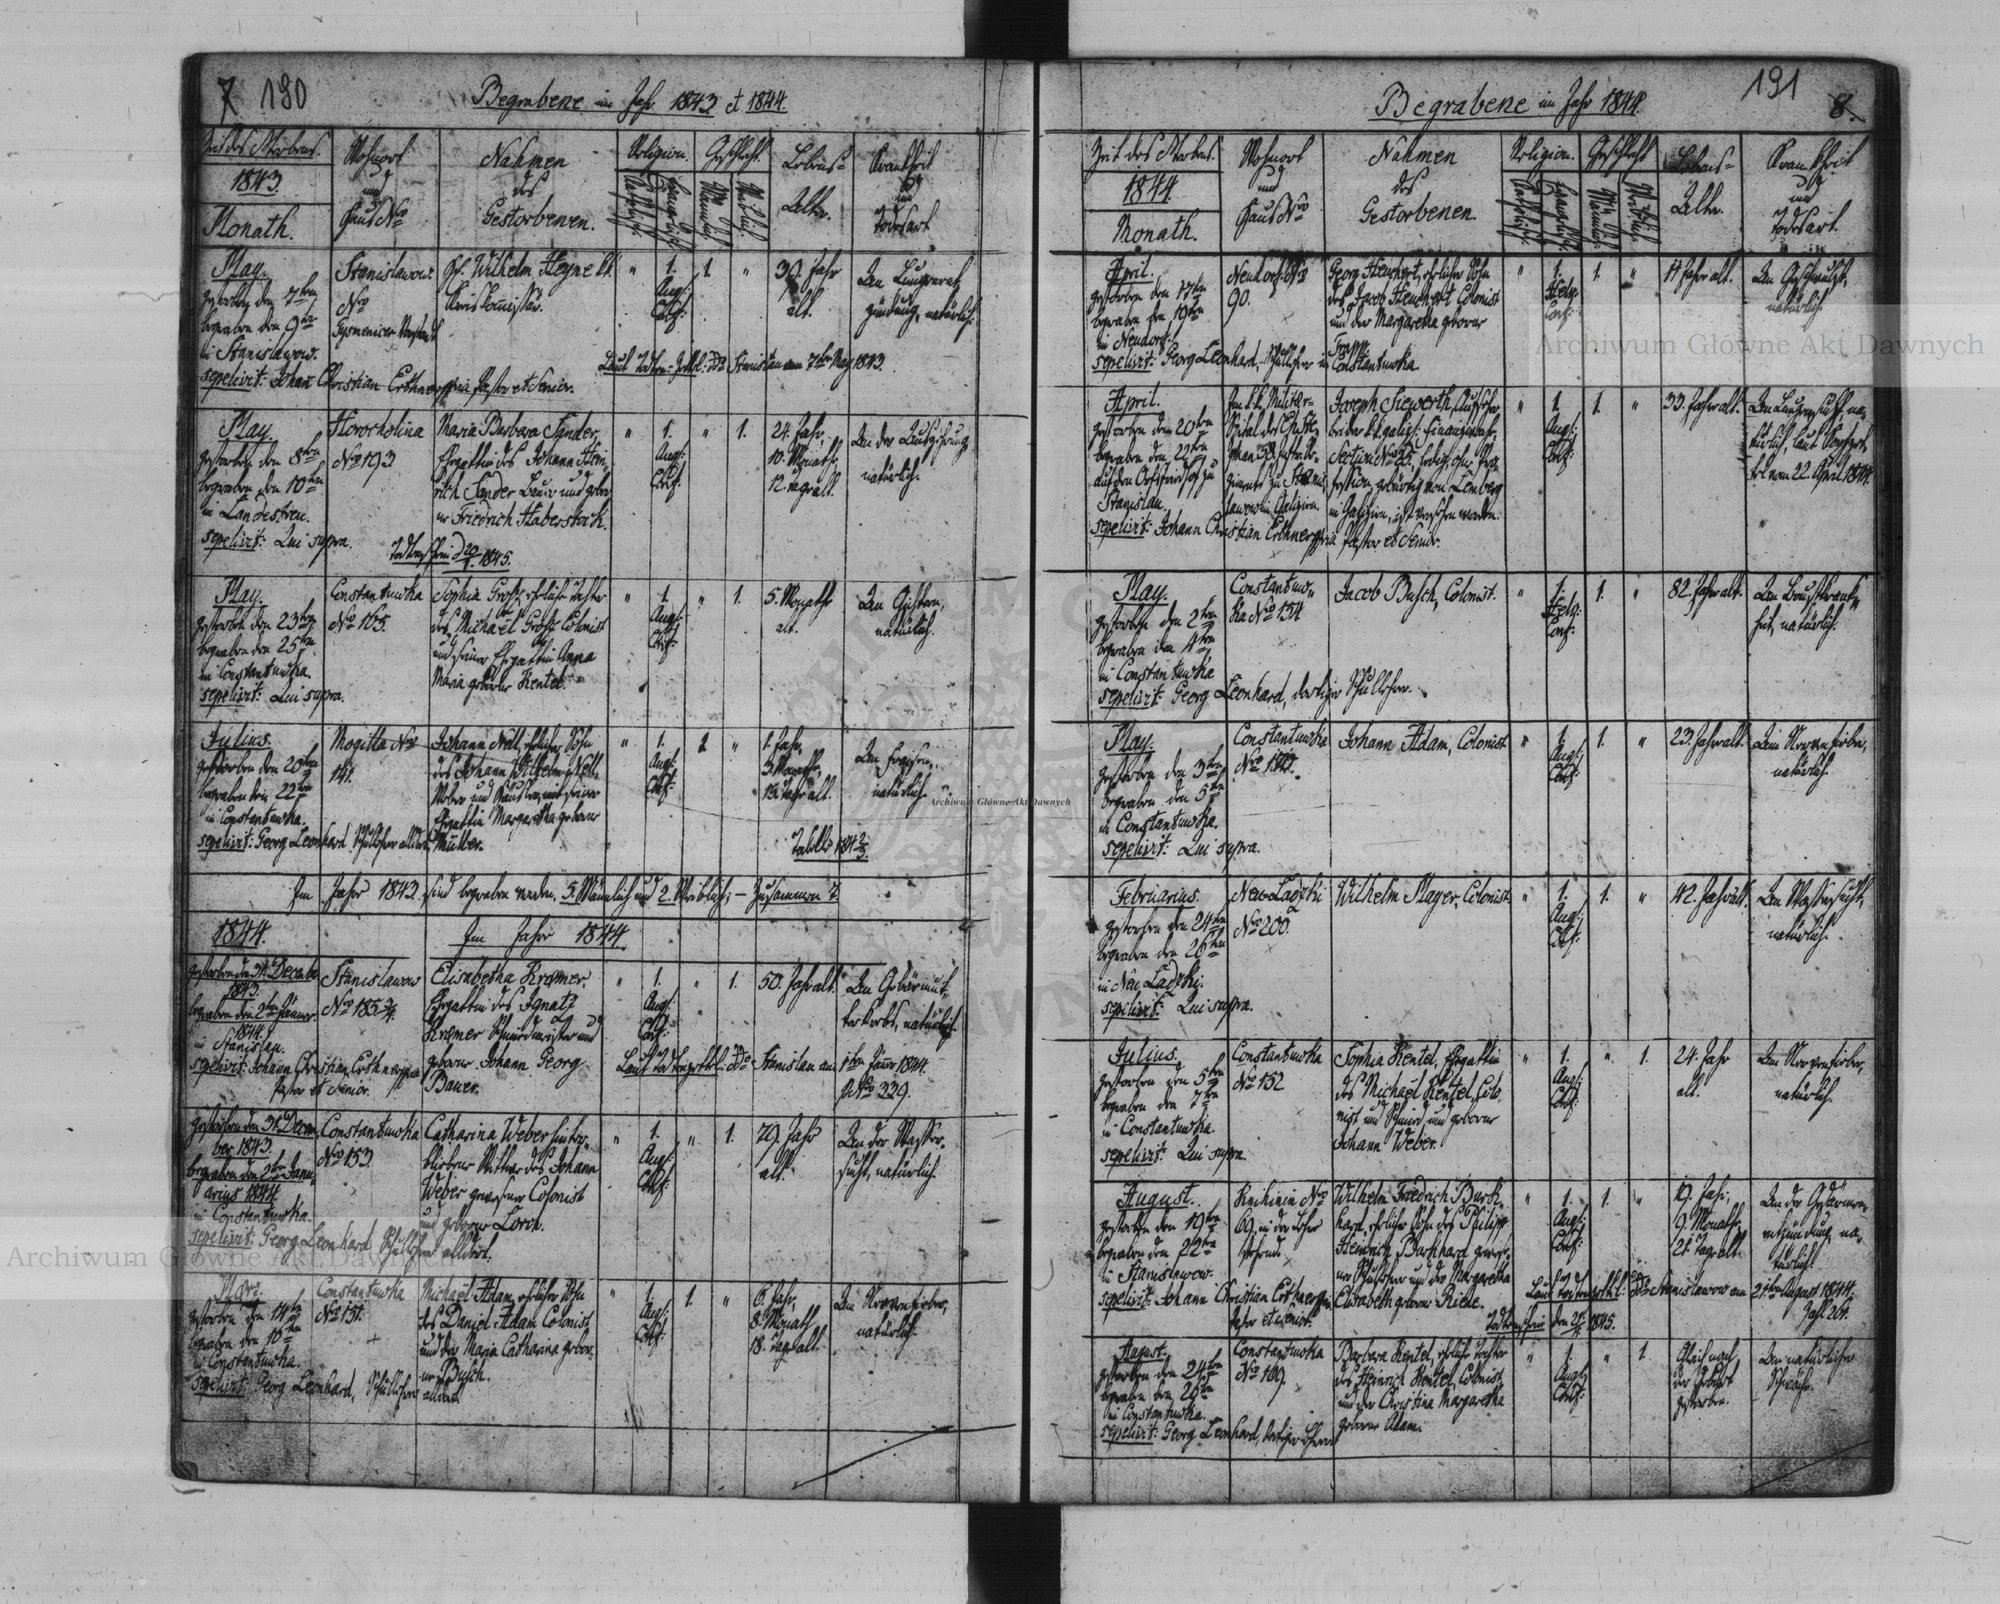 7 190
Begrabene im Jahr 1843 et 1844.
Zeit des Sterbens.
1843.
Monath.
Wohnort
und
Haus Nro
Nahmen
des
Gestorbenen.
Religion.
Geschlecht.
Lebens-
Alter.
Krankheit
und
Todesart
May.
gestorben den 7ten
begraben den 9ten
in Stanislawow.
sepelivit: Johann Christian Erthner Pastor et Senior.
Stanislawow
Nro
H. Wilhelm Heyne k.k.
" 1. 1. "
Aug:
Conf:
39. Jahr
alt.
An Lungenent-
zündung, natürlich.
Stanislau am 7ten May 1843.
May
gestorben den 8ten
begraben den 10ten
in Landestreu.
sepelivit: Qui supra.
Horocholina
No 193
Maria Barbara Sander,
Ehegattin des Johann Hein-
rich Sander Bauer und gebor-
ne Friedrich Haberstock.
" 1. " 1.
Aug:
Conf:
24. Jahr,
10. Monath,
12. Tage alt.
An der Auszehrung
natürlich.
1845.
May.
gestorben den 23ten
begraben den 25ten
in Constantowka.
sepelivit: Qui supra.
Constantowka
No 165.
Sophia Groß, eheliche Tochter
des Michael Groß Colonist
und seiner Ehegattin Anna
Maria geborne Kentel.
" 1. " 1.
Aug:
Conf:
5. Monath
alt.
natürlich.
Julius.
gestorben den 20ten
begraben den 22ten
in Constantowka.
sepelivit: Georg Leonhard Schullehrer alldort.
Mogilla Nro
141.
Johann Nell, ehelicher Sohn
des Johann Wilhelm Nell,
Weber und seiner
Ehegattin Margaretha geborne
Müller.
" 1. 1 "
Aug:
Conf:
1. Jahr,
3. Monathe,
13. Tage alt.
An Fraisen,
natürlich.
Im Jahr 1843. sind begraben worden, 5. Männlich und 2. Weiblich; – Zusammen 7.
1844.
Im Jahr 1844.
gestorben den 31. December
1843.
begraben den 2ten Jänner
1844.
in Stanislau.
sepelivit: Johann Christian Erthner
Pastor et Senior.
Stanislawow
Nro 185 3/4
Elisabetha Kramer,
Ehegattin des Ignatz
Kramer Schmiedmeister und
geborne Johann Georg
Bauer.
" 1. " 1.
Aug:
Conf:
50. Jahr alt.
An Gebärmut-
terkrebs, natürlich.
Stanislau am 1ten Jänner 1844.
No 229.
gestorben den 31. Decem-
ber 1843.
begraben den 2ten Janu-
arius 1844.
in Constantowka.
sepelivit: Georg Leonhard, Schullehrer alldort.
Constantowka
Nro 153.
Catharina Weber hinter-
bliebene Wittwe des Johann
Weber gewesener Colonist
und geborne Lorch.
" 1. " 1.
Aug:
Conf:
79. Jahr
alt.
An der Wasser-
sucht, natürlich.
März.
gestorben den 14ten
begraben den 16ten
in Constantowka.
sepelivit: Georg Leonhard, Schullehrer alldort.
Constantowka
No 151.
Michael Adam, ehelicher Sohn
des Daniel Adam Colonist,
und der Maria Catharina gebor-
ne Busch.
" 1. 1. "
Aug:
Conf:
6. Jahr,
8. Monath
18. Tage alt.
Am Nervenfieber,
natürlich.
191 8.
Begrabene im Jahr 1844.
Zeit des Sterbens.
1844.
Monath.
Wohnort
und
Haus Nro
Nahmen
des
Gestorbenen.
Religion.
Geschlecht
Lebens-
Alter.
Krankheit
und
Todesart.
April.
gestorben den 17ten
begraben den 19ten
in Neudorf.
sepelivit: Georg Leonhard, Schullehrer in Constantowka.
Neudorf Nro
90.
Georg Heuchert, ehelicher Sohn
des Jacob Heuchert Colonist
und der Margaretha geborne
" 1. 1. "
Helv:
Conf:
natürlich.
April.
gestorben den 20ten
begraben den 22ten
Stanislau.
sepelivit: Johann Christian Erthner Pastor et Senior.
Im k.k. Militär-
Joseph Siewerth, Aufseher
" 1. 1. "
Aug:
Conf:
33. Jahr alt.
vom 22. April 1844.
May.
gestorben den 2ten
begraben den 4ten
in Constantowka
sepelivit: Georg Leonhard, dortiger Schullehrer.
Constantow-
ka Nro 154
Jacob Busch, Colonist.
" 1. 1. "
Helv:
Conf:
82. Jahr alt.
An Brustkrank-
heit, natürlich.
May.
gestorben den 3ten
begraben den 5ten
in Constantowka.
sepelivit: Qui supra.
Constantowka
Johann Adam, Colonist
" 1. 1. "
Aug:
Conf:
23. Jahr alt.
Am Nervenfieber,
natürlich.
Februarius.
gestorben den 24ten
begraben den 26ten
in Neu Ladzki.
sepelivit: Qui supra.
Neu-Ladzki
No 200.
Wilhelm Mayer, Colonist.
" 1. 1. "
Aug:
Conf:
42. Jahr alt.
An Wassersucht,
natürlich.
Julius.
gestorben den 5ten
begraben den 7ten
in Constantowka.
sepelivit: Qui supra.
Constantowka
No 152
Sophia Kentel, Ehegattin
des Michael Kentel, Colo-
nist und Schmied, und geborne
Johann Weber.
" 1. " 1.
Aug:
Conf:
24. Jahr
alt.
Am Nervenfieber,
natürlich.
August.
gestorben den 19ten
begraben den 22ten
in Stanislawow.
sepelivit: Johann Christian Erthner
Pastor et Senior.
Knihinin Nro
69.
Wilhelm Friedrich Burk-
hard, ehelicher Sohn des Philipp
Heinrich Burkhard gewese-
ner Schullehrer und der Margaretha
Elisabeth geborne Riede.
" 1. 1. "
Aug:
Conf:
19. Jahr,
9. Monath,
21. Tage alt.
An der Gedärmen-
entzündung, na-
türlich.
Stanislawow am 21ten August 1844.
1845.
August.
gestorben den 24ten
begraben den 26ten
in Constantowka.
sepelivit: Georg Leonhard, dortiger Lehrer
Constantowka
No 169.
Barbara Kentel, eheliche Tochter
des Heinrich Kentel, Colonist,
und der Christina Margaretha
geborne Adam.
" 1. " 1.
Aug:
Conf:
Gleich nach
der Geburt
gestorben.
An natürlicher
Schwäche.
Archiwum Główne Akt Dawnych
Archiwum Główne Akt Dawnych
Archiwum Główne Akt Dawnych